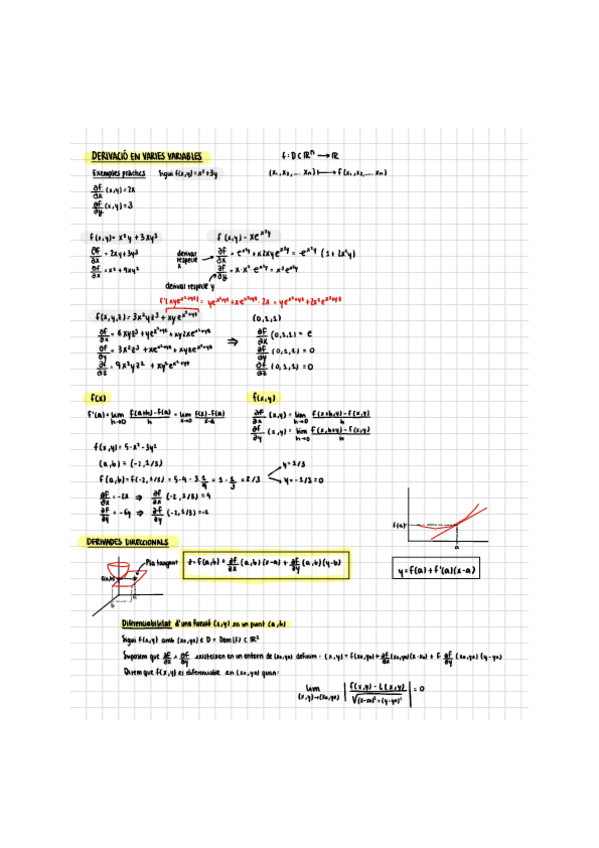 DERIVACIÓ EN VARIES VARIABLES
f: D ⊂ ℝⁿ → ℝ
Exemples pràctics Sigui f(x,y) = x² + 3y
(x₁, x₂, ... xₙ) ↦ f(x₁, x₂, ... xₙ)
∂f/∂x (x,y) = 2x
∂f/∂y (x,y) = 3
f(x,y) = x²y + 3xy³
∂f/∂x = 2xy + 3y³
∂f/∂x = x² + 9xy²
f(x,y) = xe^(x²y)
derivar respecte x
∂f/∂x = e^(x²y) + x2xye^(x²y) = e^(x²y) (1 + 2x²y)
∂f/∂y = x·x²·e^(x²y) = x³e^(x²y)
derivar respecte y
f'(xye^(x²+y²)) = ye^(x²+y²) + xe^(x²+y²)·2x = ye^(x²+y²) + 2x²e^(x²+y²)
f(x,y,z) = 3x²yz³ + xye^(x²+y²)
(0,1,1)
∂f/∂x (0,1,1) = e
∂f/∂y (0,1,1) = 0
∂f/∂z (0,1,1) = 0
f(x)
f'(a) = lim h→0 f(a+h)-f(a)/h = lim x→0 f(x)-f(a)/x-a
f(x,y)
∂f/∂x (x,y) = lim h→0 f(x+h,y)-f(x,y)/h
∂f/∂y (x,y) = lim h→0 f(x,h+y)-f(x,y)/h
f(x,y) = 5-x²-3y²
(a,b) = (-2,1/3)
f(a,b) = f(-2,1/3) = 5-4-3·1/9 = 1-1/3 = 2/3
y=1/3
y=-1/3=0
∂f/∂x = -2x ⇒ ∂f/∂x (-2,1/3) = 4
∂f/∂y = -6y ⇒ ∂f/∂y (-2,1/3) = -2
f(a)
a
DERIVADES DIRECCIONALS
Pla tangent
f(a,b)
z = f(a,b) + ∂f/∂x (a,b)(x-a) + ∂f/∂y (a,b)(y-b)
y = f(a) + f'(a)(x-a)
Diferenciabilitat d'una funció (x,y) en un punt (a,b)
Sigui f(x,y) amb (x₀,y₀) ∈ D = Dom(f) ⊂ ℝ²
Suposem que ∂f/∂x i ∂f/∂y existeixen en un entorn de (x₀,y₀) definim: (x,y) = f(x₀,y₀) + ∂f/∂x (x₀,y₀)(x-x₀) + F ∂f/∂y (x₀,y₀) (y-y₀)
Direm que f(x,y) es diferenciable en (x₀,y₀) quan:
lim (x,y)→(x₀,y₀) | f(x,y) - L(x,y) / √((x-x₀)²+(y-y₀)²) | = 0